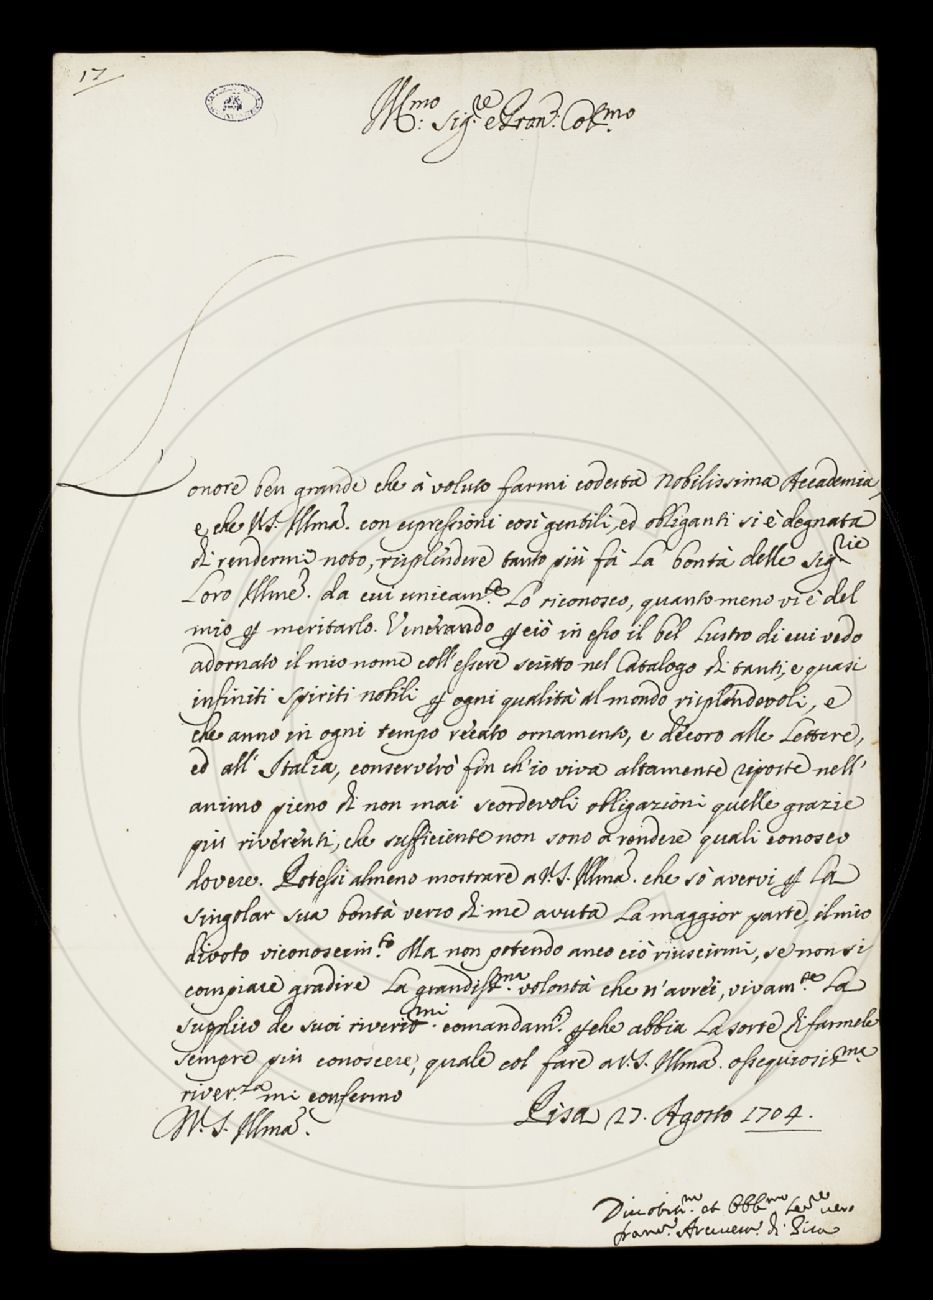 17
Ill.mo Sig.re e Pron. Col.mo
L'onore ben grande che à voluto farmi codesta Nobilissima Accademia,
e che V.S. Illma. con espressioni così gentili, ed obliganti si è degnata
di rendermi noto, risplendere tanto più fà la bontà delle Sig.rie
Loro Illme. da cui unicam.te Lo riconosco, quanto meno vi è del
mio p meritarlo. Venerando p ciò in esso il bel Lustro di cui vedo
adornato il mio nome coll'essere scritto nel Catalogo di tanti, e quasi
infiniti spiriti nobili p ogni qualità al mondo risplendevoli, e
che anno in ogni tempo recato ornamento, e decoro alle Lettere,
ed all' Italia, conserverò fin ch'io viva altamente riposte nell'
animo pieno di non mai scordevoli obligazioni quelle grazie
più riverenti, che sufficiente non sono a rendere quali conosco
dovere. Potessi almeno mostrare a V.S. Illma. che sò avervi p La
singolar sua bontà verso di me avuta La maggior parte, il mio
divoto riconoscim.to Ma non potendo anco ciò riuscirmi, se non si
compiace gradire La grandiss.ma volontà che n'avrei, vivam.te La
supplico de suoi riverit.mi comandam. p che abbia La sorte di farmele
sempre più conoscere, quale col fare a V.S. Illma. ossequiosis.ma
river.za mi confermo
V.S. Illma.
Pisa 27. Agosto 1704.
Divotis.mo et Obb.mo Se.re vero
Fran.co Arcivesc. di Pisa